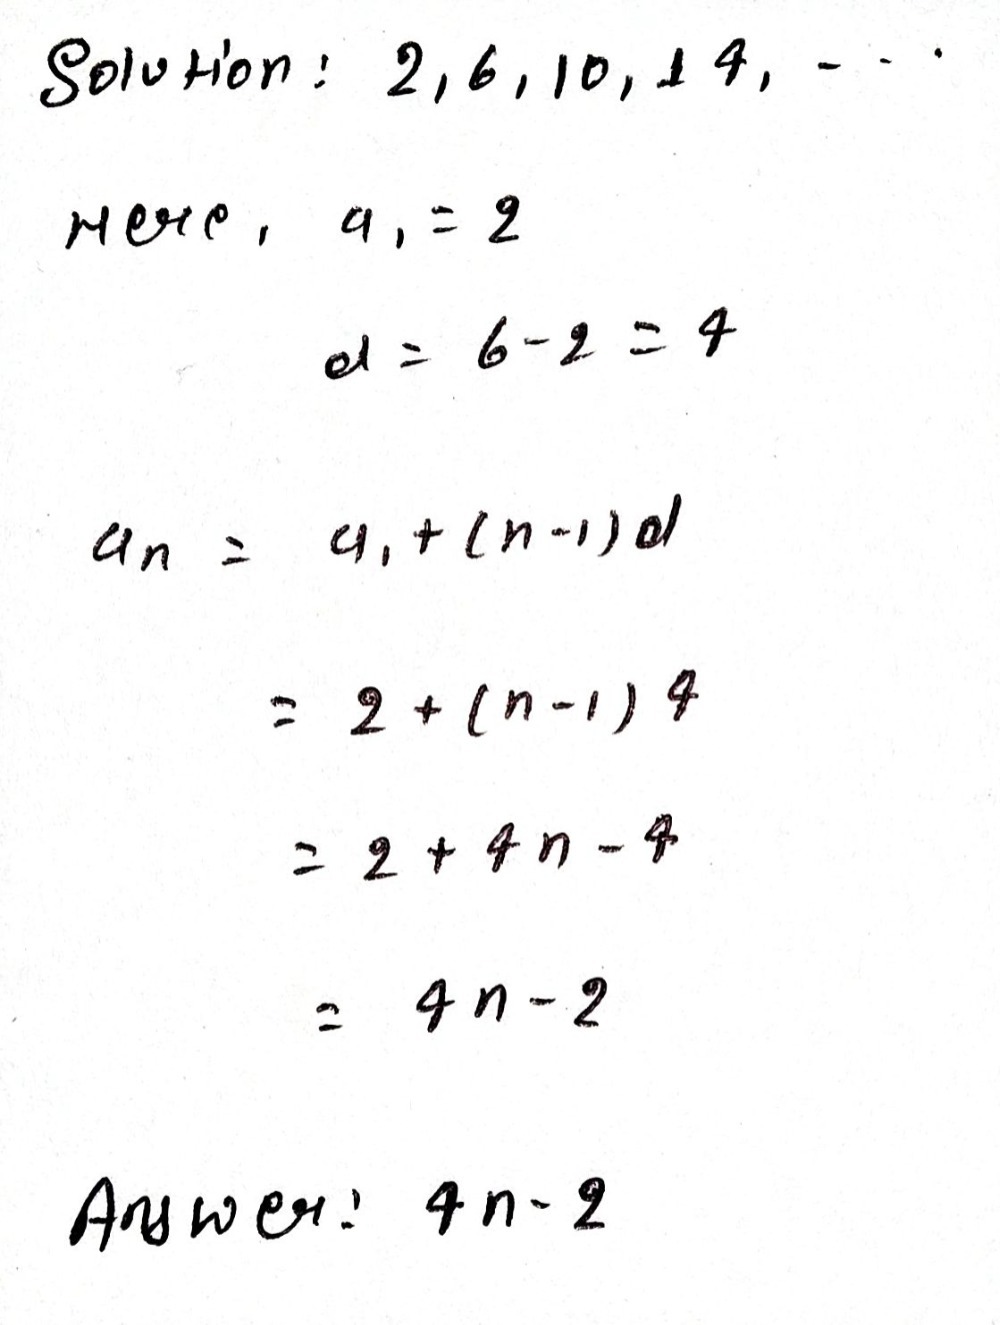 Solution: 2, 6, 10, 14, - - .
Here, a₁ = 2
d = 6-2 = 4
aₙ = a₁ + (n-1)d
= 2 + (n-1) 4
= 2 + 4n - 4
= 4n - 2
Answer: 4n - 2